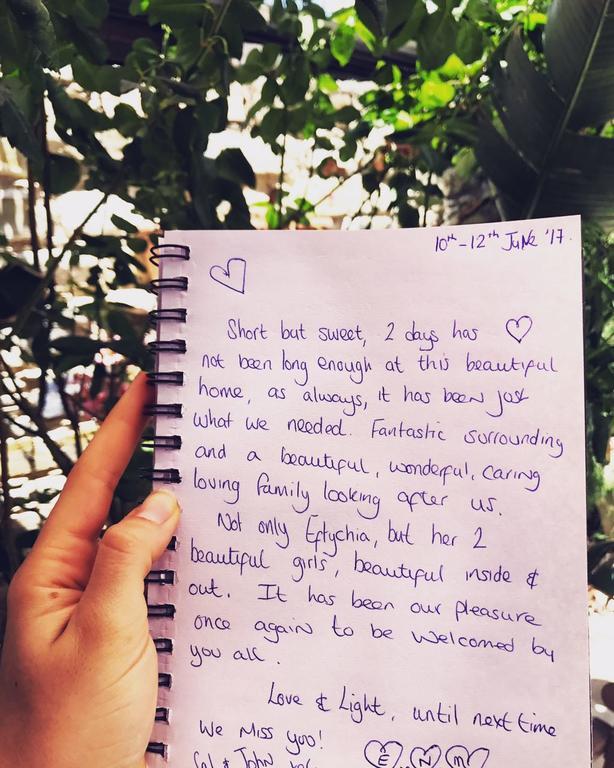 10th - 12th June '17.
Short but sweet, 2 days has
not been long enough at this beautiful
home, as always, it has been just
what we needed. Fantastic surrounding
and a beautiful, wonderful, caring
loving family looking after us.
Not only Eftychia, but her 2
beautiful girls, beautiful inside &
out. It has been our pleasure
once again to be welcomed by
you all.
Love & Light, until next time
We Miss you!
& John
E N M